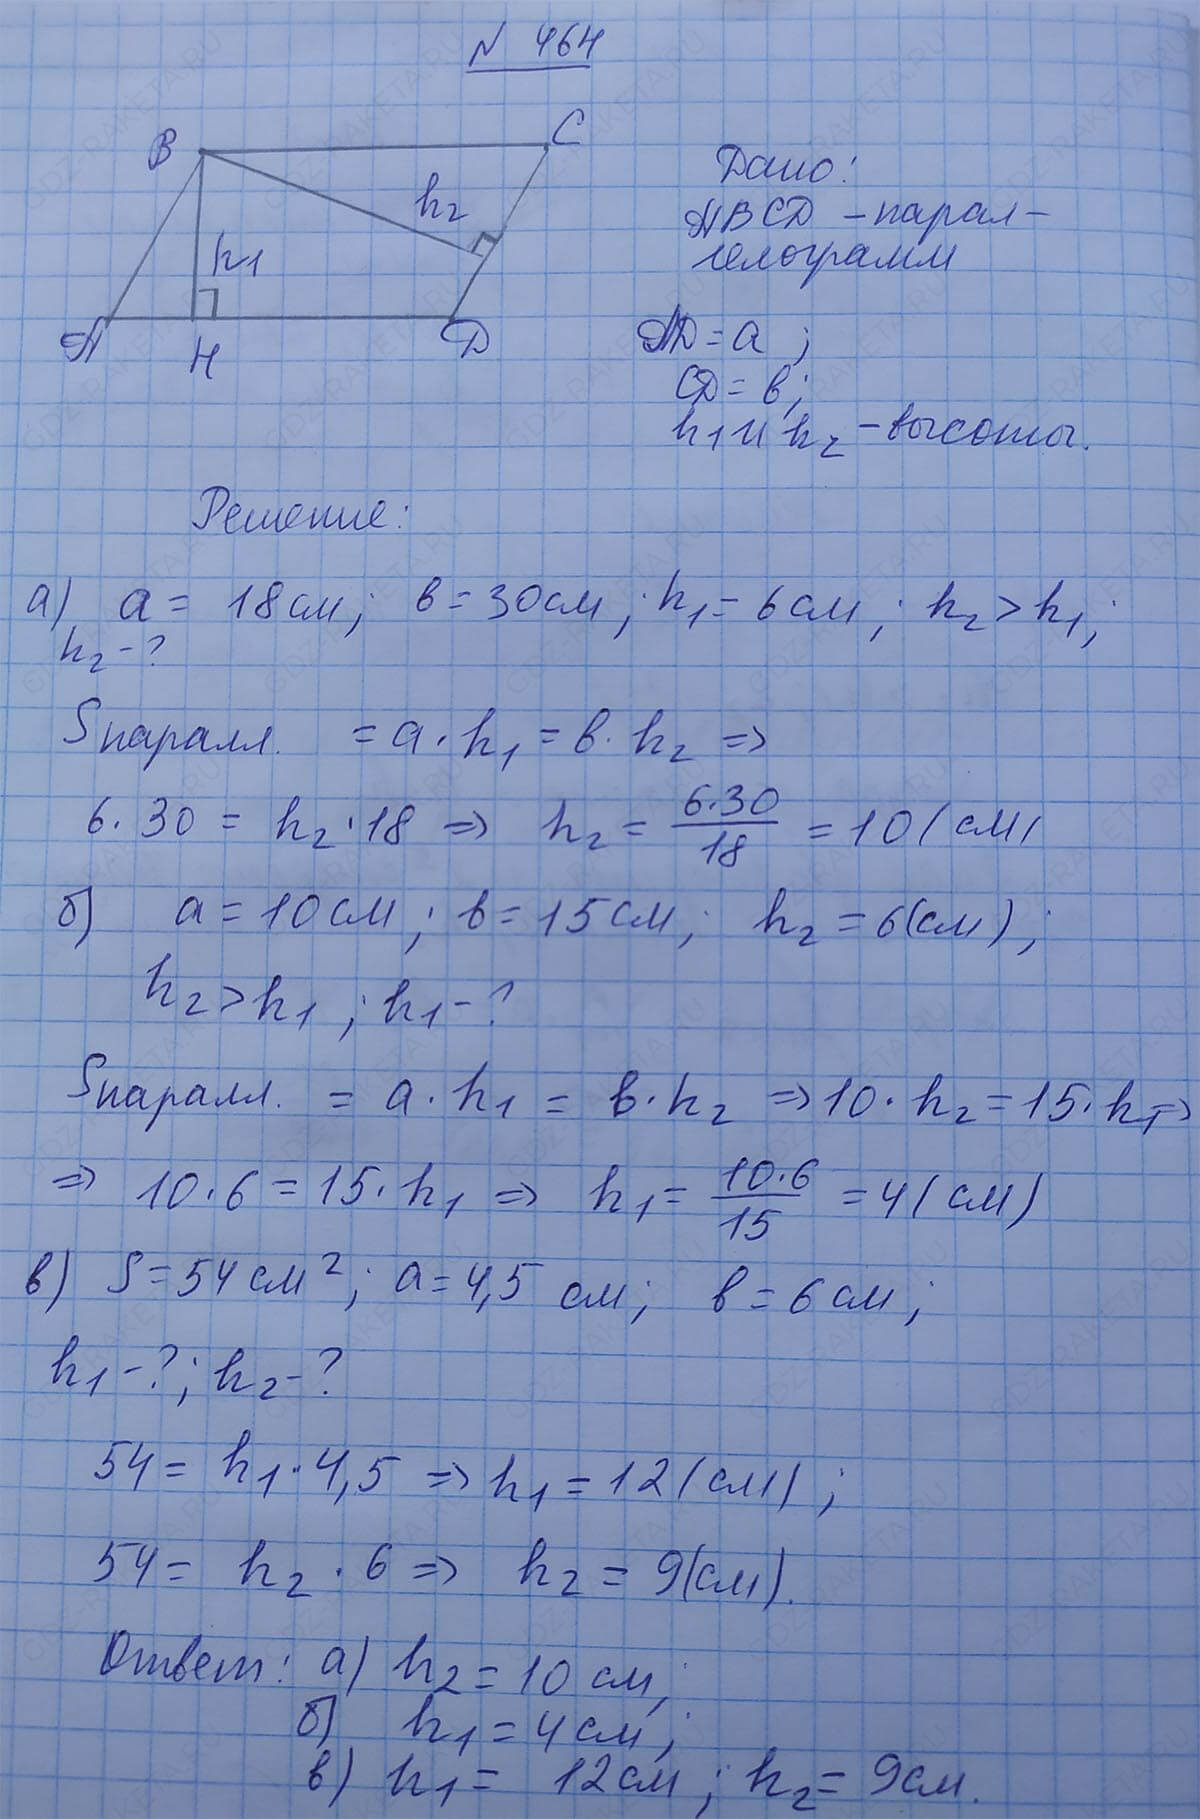 N 464
B
C
h2
h1
A
H
D
Дано:
ABCD – парал-
лелограмм
AD = a ;
CD = в;
h1 и h2 – высоты.
Решение:
а) a = 18см; в = 30см; h1 = 6см; h2 > h1;
h2 - ?
Sпаралл. = a · h1 = в · h2 =>
6 · 30 = h2 · 18 => h2 = 6·30/18 = 10 (см)
б) a = 10см; в = 15см; h2 = 6(см);
h2 > h1 ; h1 - ?
Sпаралл. = a · h1 = в · h2 => 10 · h2 = 15 · h1 =>
=> 10 · 6 = 15 · h1 => h1 = 10·6/15 = 4 (см)
в) S = 54 см²; a = 4,5 см; в = 6см;
h1 - ?; h2 - ?
54 = h1 · 4,5 => h1 = 12 (см);
54 = h2 · 6 => h2 = 9(см).
Ответ: а) h2 = 10 см;
б) h1 = 4см;
в) h1 = 12см; h2 = 9см.